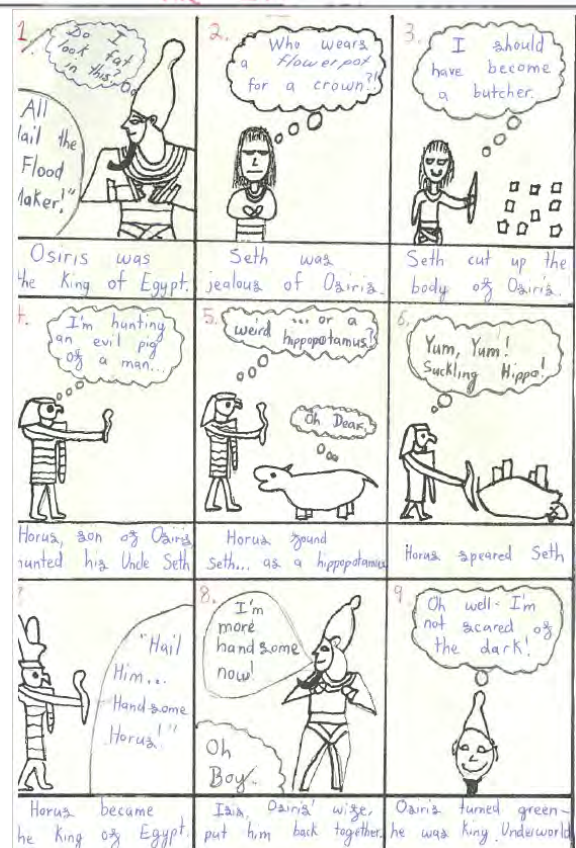 1.
Do I
look fat
in this?
All
Hail the
Flood
Maker!"
Osiris was
the King of Egypt.
2.
Who wears
a flowerpot
for a crown?!
Seth was
jealous of Osiris.
3.
I should
have become
a butcher.
Seth cut up the
body of Osiris.
4.
I'm hunting
an evil pig
of a man...
Horus, son of Osiris,
hunted his Uncle Seth
5.
... or a
weird hippopotamus?
Oh Dear.
Horus found
Seth... as a hippopotamus
6.
Yum, Yum!
Suckling Hippo!
Horus speared Seth
"Hail
Him...
Handsome
Horus!"
Horus became
the King of Egypt.
8.
I'm
more
handsome
now!
Oh
Boy...
Isis, Osiris' wife,
put him back together.
9.
Oh well- I'm
not scared of
the dark!
Osiris turned green-
he was King Underworld